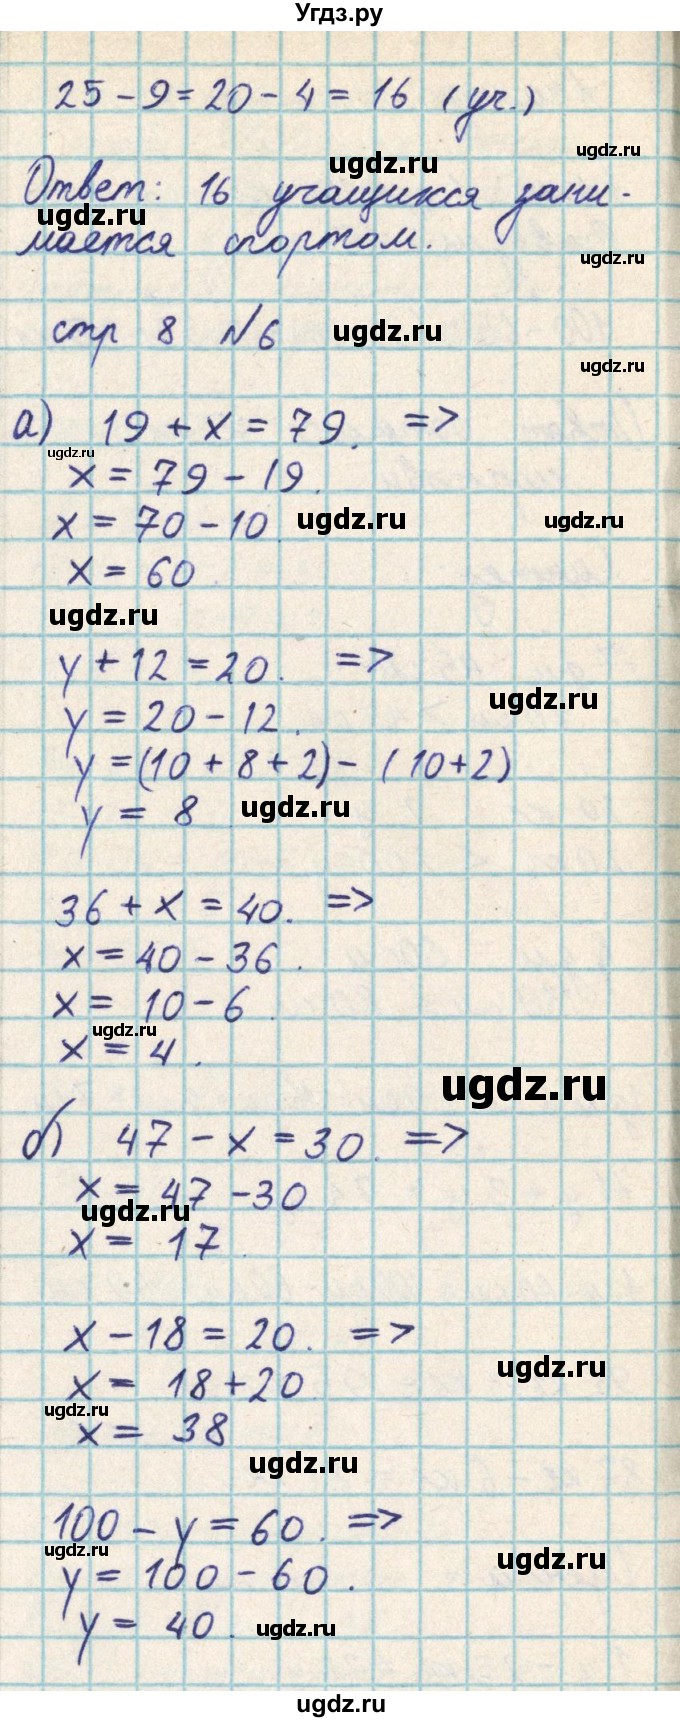 Угдз.ру
25 - 9 = 20 - 4 = 16 (уч.)
ugdz.ru
ugdz.ru
Ответ: 16 учащихся зани-
ugdz.ru
мается спортом.
ugdz.ru
стр 8 №6
ugdz.ru
ugdz.ru
а) 19 + x = 79. =>
ugdz.ru
x = 79 - 19.
x = 70 - 10
ugdz.ru
ugdz.ru
x = 60.
ugdz.ru
y + 12 = 20. =>
ugdz.ru
y = 20 - 12.
y = (10 + 8 + 2) - (10 + 2)
y = 8
ugdz.ru
36 + x = 40. =>
x = 40 - 36.
x = 10 - 6.
ugdz.ru
x = 4.
ugdz.ru
б) 47 - x = 30. =>
x = 47 - 30
ugdz.ru
x = 17
x - 18 = 20. =>
ugdz.ru
x = 18 + 20
ugdz.ru
x = 38
ugdz.ru
100 - y = 60. =>
ugdz.ru
ugdz.ru
y = 100 - 60.
y = 40.
ugdz.ru
ugdz.ru